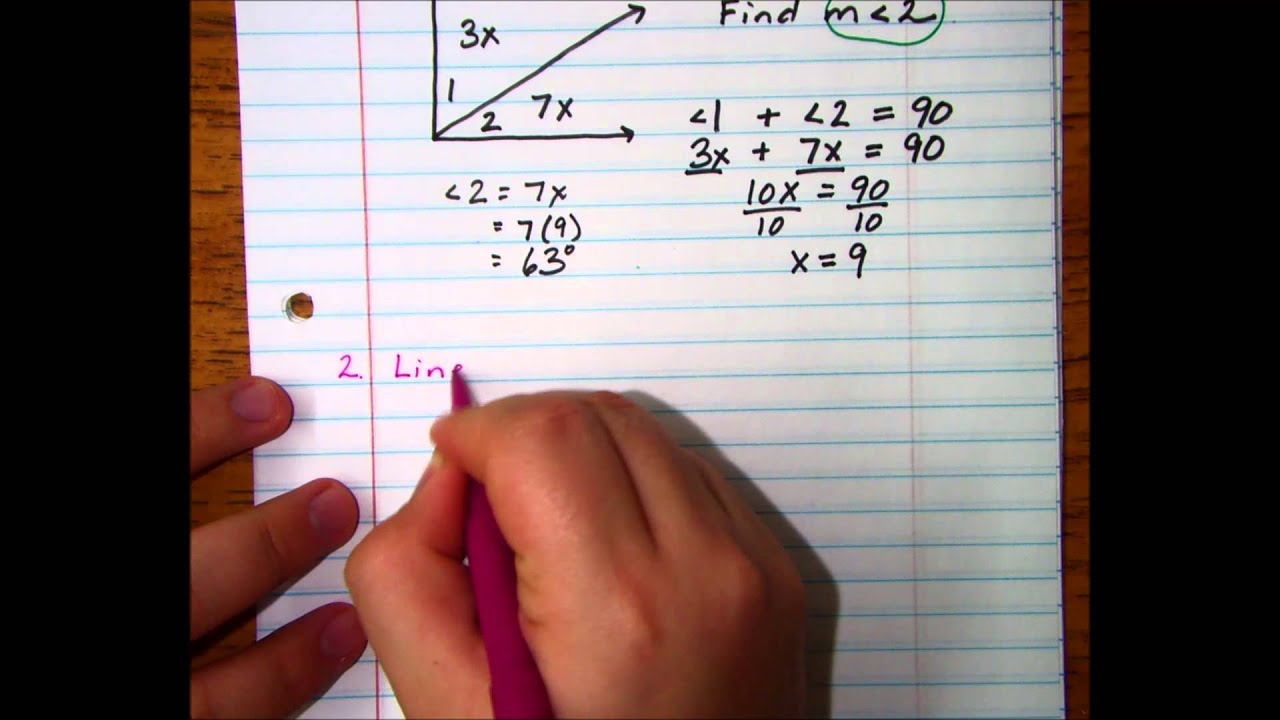 Find m<2
3x
1
2
7x
<1 + <2 = 90
3x + 7x = 90
10x = 90
10 10
x = 9
<2 = 7x
= 7(9)
= 63°
2. Line